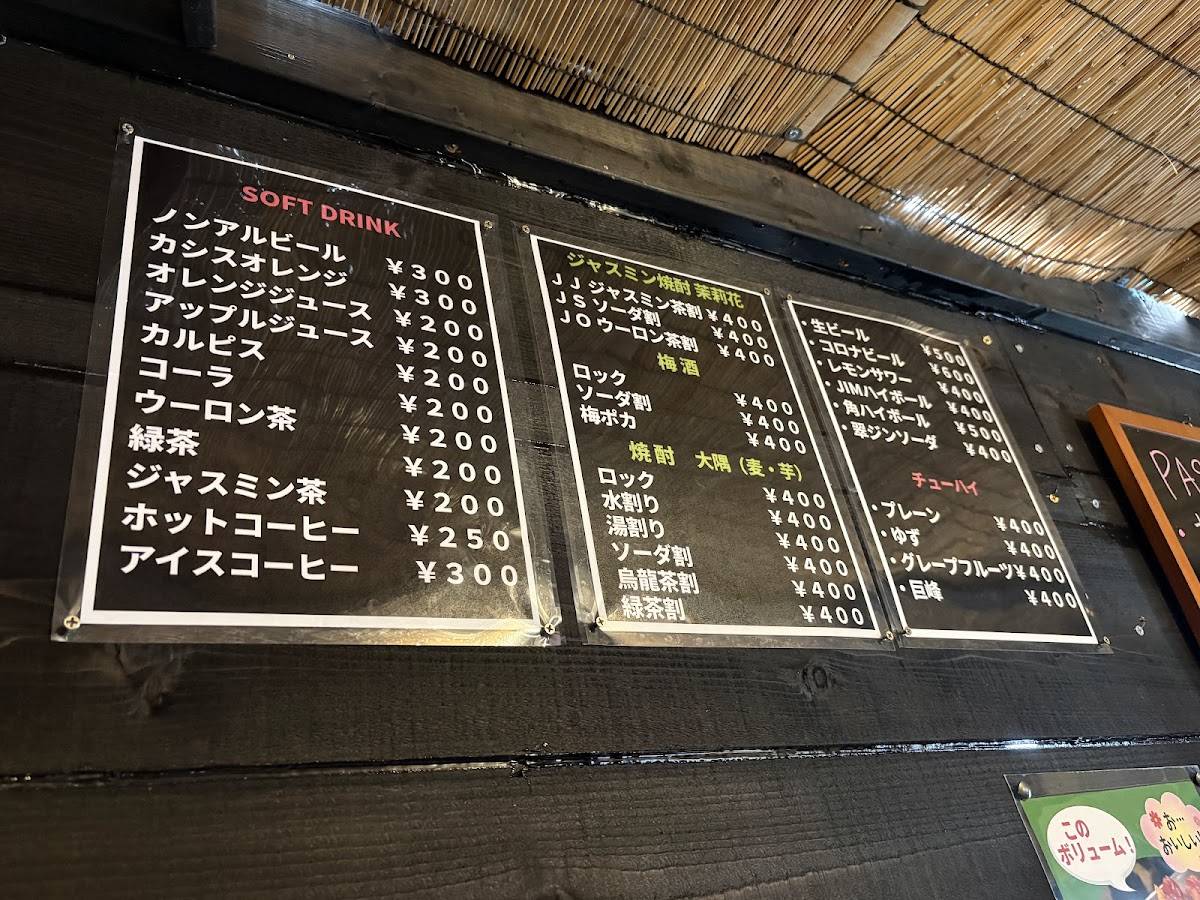 SOFT DRINK
ノンアルビール ￥300
カシスオレンジ ￥300
オレンジジュース ￥200
アップルジュース ￥200
カルピス ￥200
コーラ ￥200
ウーロン茶 ￥200
緑茶 ￥200
ジャスミン茶 ￥200
ホットコーヒー ￥250
アイスコーヒー ￥300
ジャスミン焼酎 茉莉花
JJジャスミン茶割 ￥400
JSソーダ割 ￥400
JOウーロン茶割 ￥400
梅酒
ロック ￥400
ソーダ割 ￥400
梅ポカ ￥400
焼酎 大隅（麦・芋）
ロック ￥400
水割り ￥400
湯割り ￥400
ソーダ割 ￥400
烏龍茶割 ￥400
緑茶割 ￥400
・生ビール ￥500
・コロナビール ￥600
・レモンサワー ￥400
・JIMハイボール ￥400
・角ハイボール ￥500
・翠ジンソーダ ￥400
チューハイ
・プレーン ￥400
・ゆず ￥400
・グレープフルーツ￥400
・巨峰 ￥400
PAS
この
ボリューム！
お…
おいしい